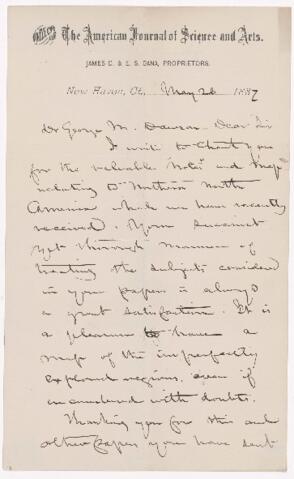 The American Journal of Science and Arts.
JAMES D. & E. S. DANA, PROPRIETORS.
New Haven, Ct., May 26 1887
Dr George M. Dawson Dear Sir
I write to thank you
for the valuable Notes and Map
relating to Northern North
America which we have recently
received. Your succinct
yet thorough manner of
treating the subjects considered
in your papers is always
a great satisfaction. It is
a pleasure to have a
map of the imperfectly
explored regions, even if
encumbered with doubts.
Thanking you for this and
other papers you have sent